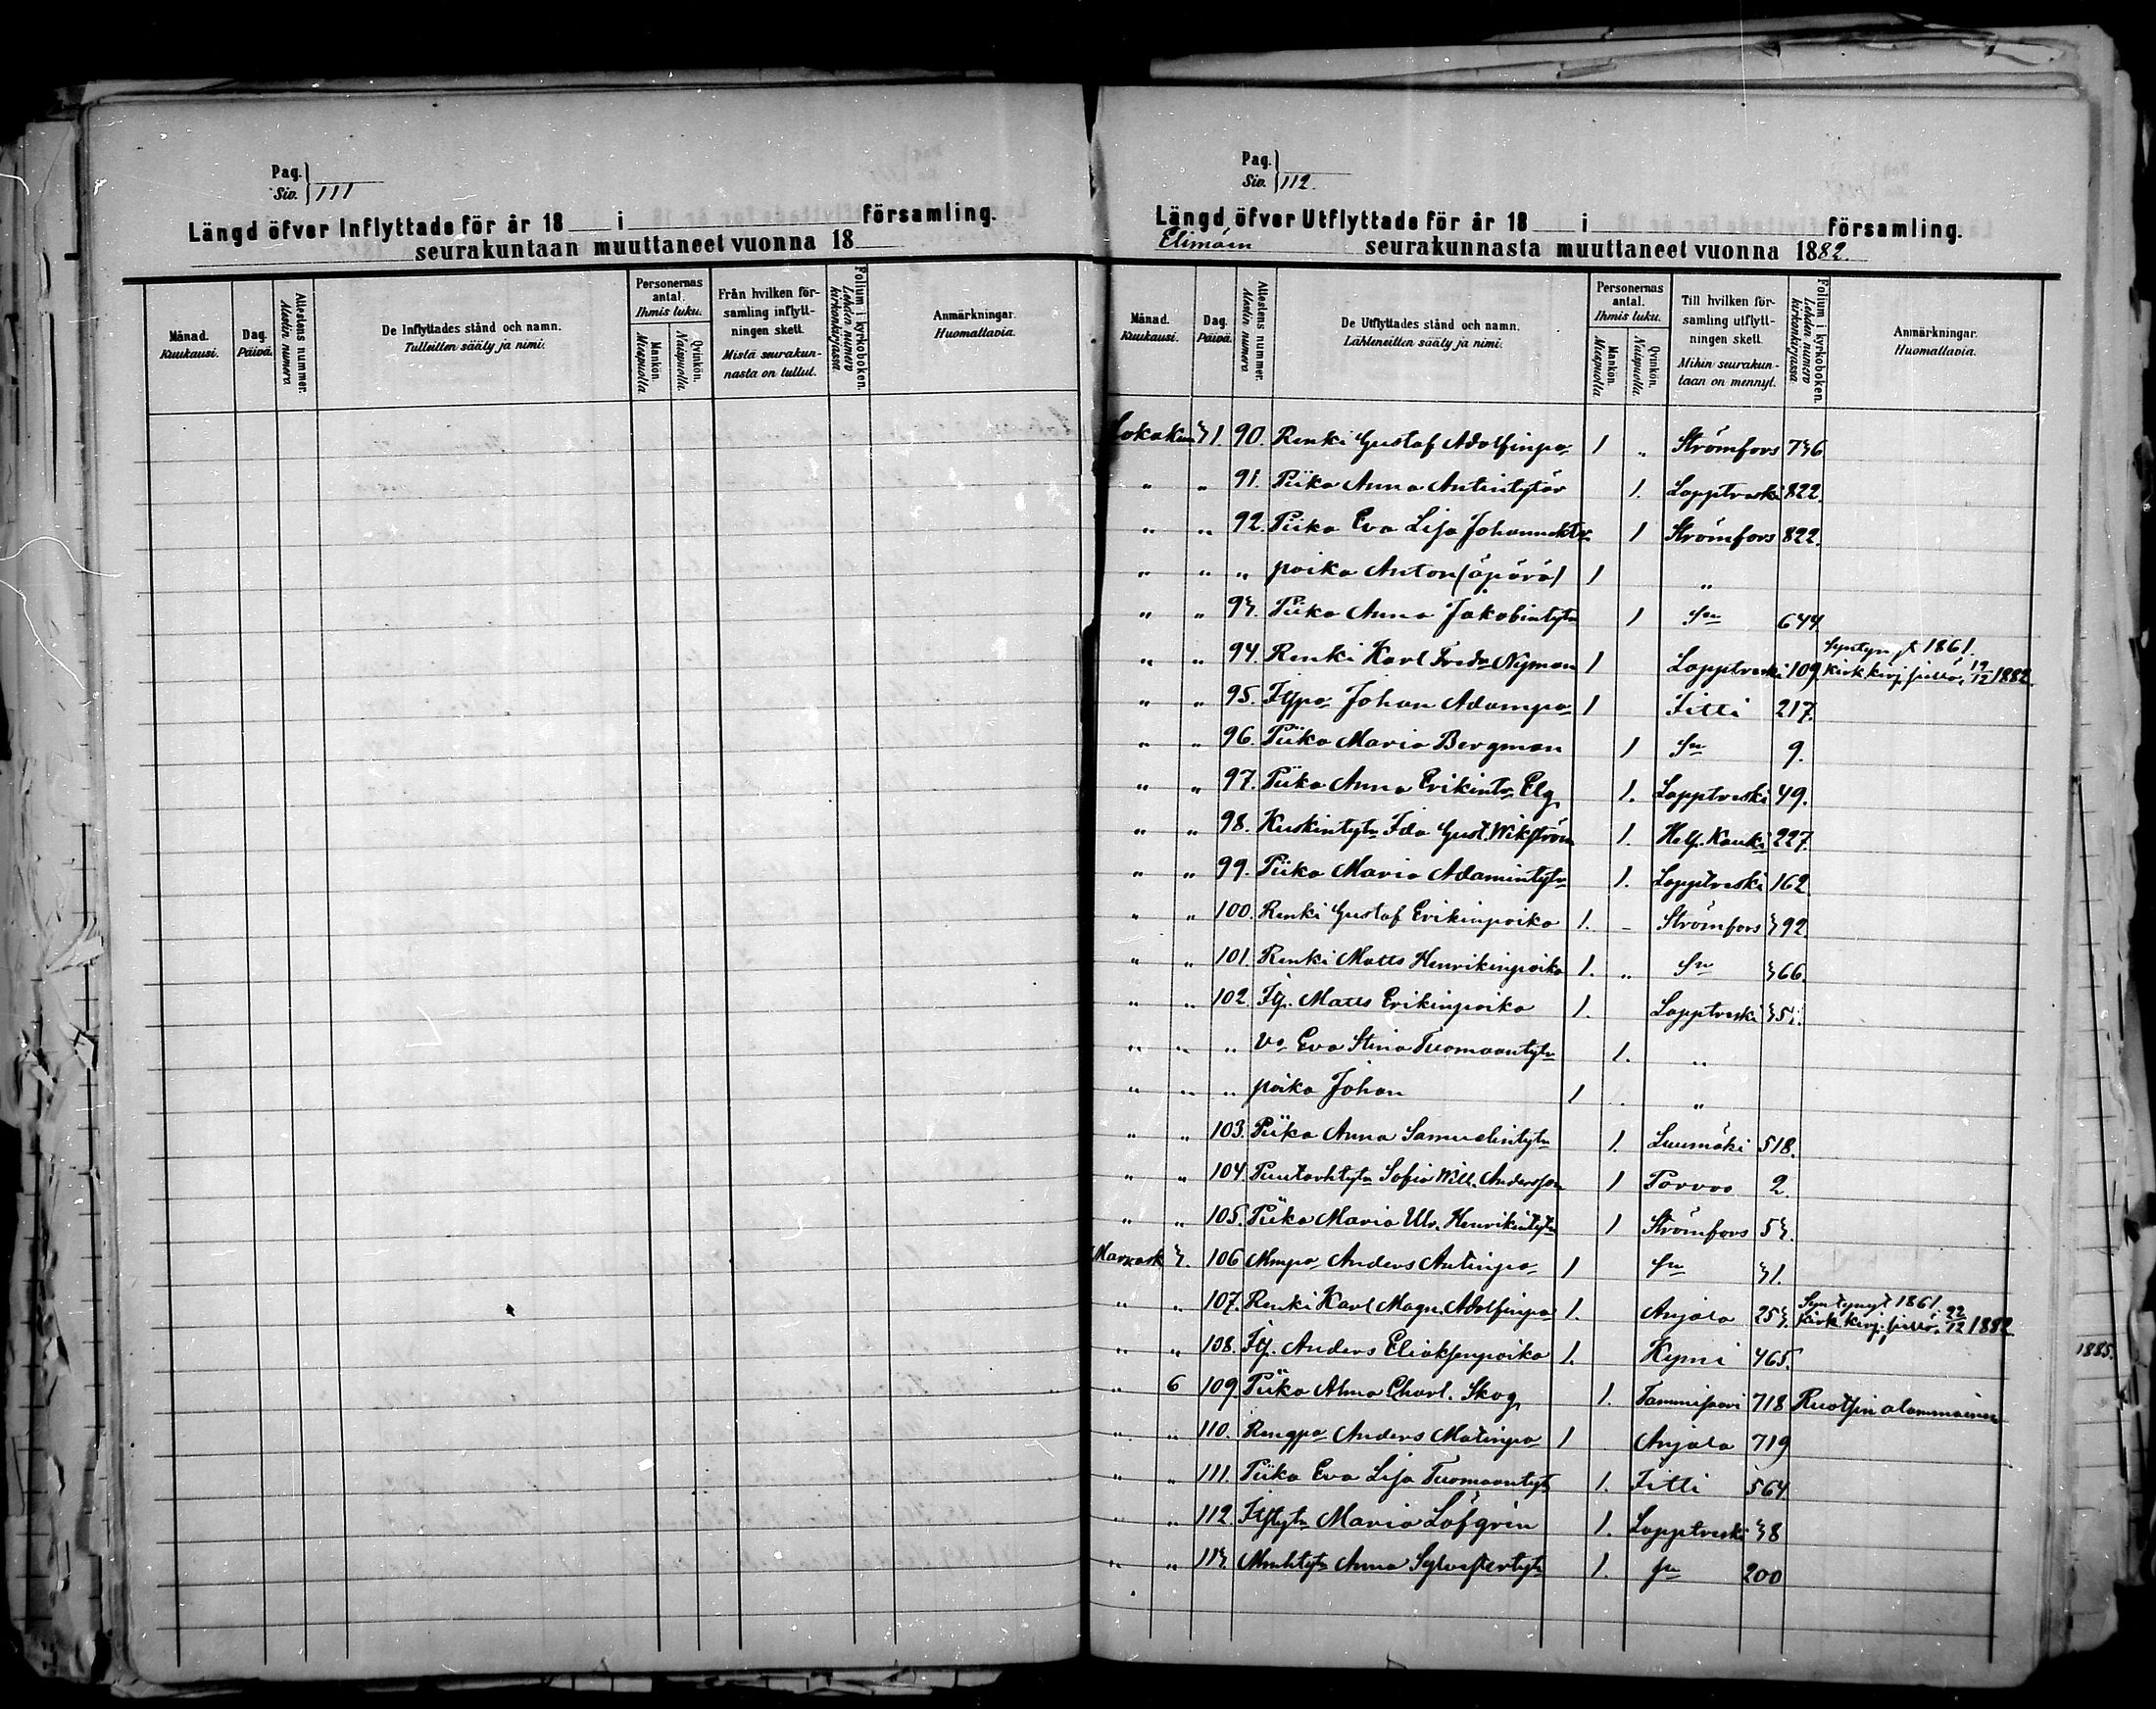 Pag.
Siv. 111
Längd öfver Inflyttade för år 18 i församling.
seurakuntaan muuttaneet vuonna 18
Månad. Kuukausi.
Dag. Päivä.
Attestens nummer. Alestin numero
De Inflyttades stånd och namn.
Tulleitten sääty ja nimi.
Personernas antal. Ihmis luku.
Mankön. Miespuolia
Qvinkön. Naispuolia.
Från hvilken församling inflyttningen skett.
Mistä seurakunnasta on tullut.
Folium i kyrkoboken. Lehden numero kirkonkirjassa.
Anmärkningar.
Huomattavia.
Pag.
Siv. 112.
Längd öfver Utflyttade för år 18 i församling.
Elimäen seurakunnasta muuttaneet vuonna 1882.
Månad. Kuukausi.
Dag. Päivä.
Attestens nummer. Alestin numero
De Utflyttades stånd och namn.
Lähteneitten sääty ja nimi.
Personernas antal. Ihmis luku.
Mankön. Miespuolia
Qvinkön. Naispuolia.
Till hvilken församling utflyttningen skett.
Mihin seurakuntaan on mennyt.
Folium i kyrkoboken. Lehden numero kirkonkirjassa.
Anmärkningar.
Huomattavia.
Lokakuu 31. 90. Renki Gustaf Adolfinpo 1 " Strömfors 736
" " 91. Piika Anna Antintytär 1. Lapptreski 822.
" " 92. Piika Eva Lisa Johannekt 1 Strömfors 822.
" " " poika Anton (äpärä) 1 "
" " 93. Piika Anna Jakobintytr 1 Sn 644.
" " 94. Renki Karl Fredr Nyman 1 Lapptreski 109. Syntynyt 1861. Kirk. kirj. 19/12 1882.
" " 95. Itpo Johan Adampo 1 Iitti 217.
" " 96. Piika Maria Bergman 1 Sn 9.
" " 97. Piika Anna Erikintr Elg 1. Lapptreski 49.
" " 98. Kuskintytr Ida Gust. Wikström 1. Hels. Kauki 227.
" " 99. Piika Maria Adamintytr 1. Lapptreski 162
" " 100. Renki Gustaf Erikinpoika 1. - Strömfors 392
" " 101. Renki Matts Henrikinpoika 1. " Sn 366.
" " 102. Itj. Matts Erikinpoika 1. Lapptreski
" " " Vo Eva Stina Tuomaantytr 1. "
" " " poika Johan 1 "
" " 103. Piika Anna Samuelintytr 1. Luumäki 518.
" " 104. Puutarhtytr Sofia Will. Andersson 1 Porvoo 2.
" " 105. Piika Maria Ulr. Henrikintytr 1 Strömfors 53.
Marrask 3. 106 Mmpo Anders Antinpo 1 Sn 31.
" " 107. Renki Karl Magn. Adolfinpo 1. Anjala 253. Syntynyt 1861. Kirk. kirj. 22/12 1882
" " 108. Itj. Anders Eliaksenpoika 1. Kymi 465.
" 6 109. Piika Alma Charl. Skog 1. Tammisaari 718 Ruotsin alammainen
" " 110. Rengpo Anders Matinpo 1 Anjala 719
" " 111. Piika Eva Lisa Tuomaantyt 1. Iitti 564.
" " 112. Itjtytr Maria Löfgrén 1. Lapptreski 38
" " 113. Anna Sylvestertytr 1. Sn 200
1885.